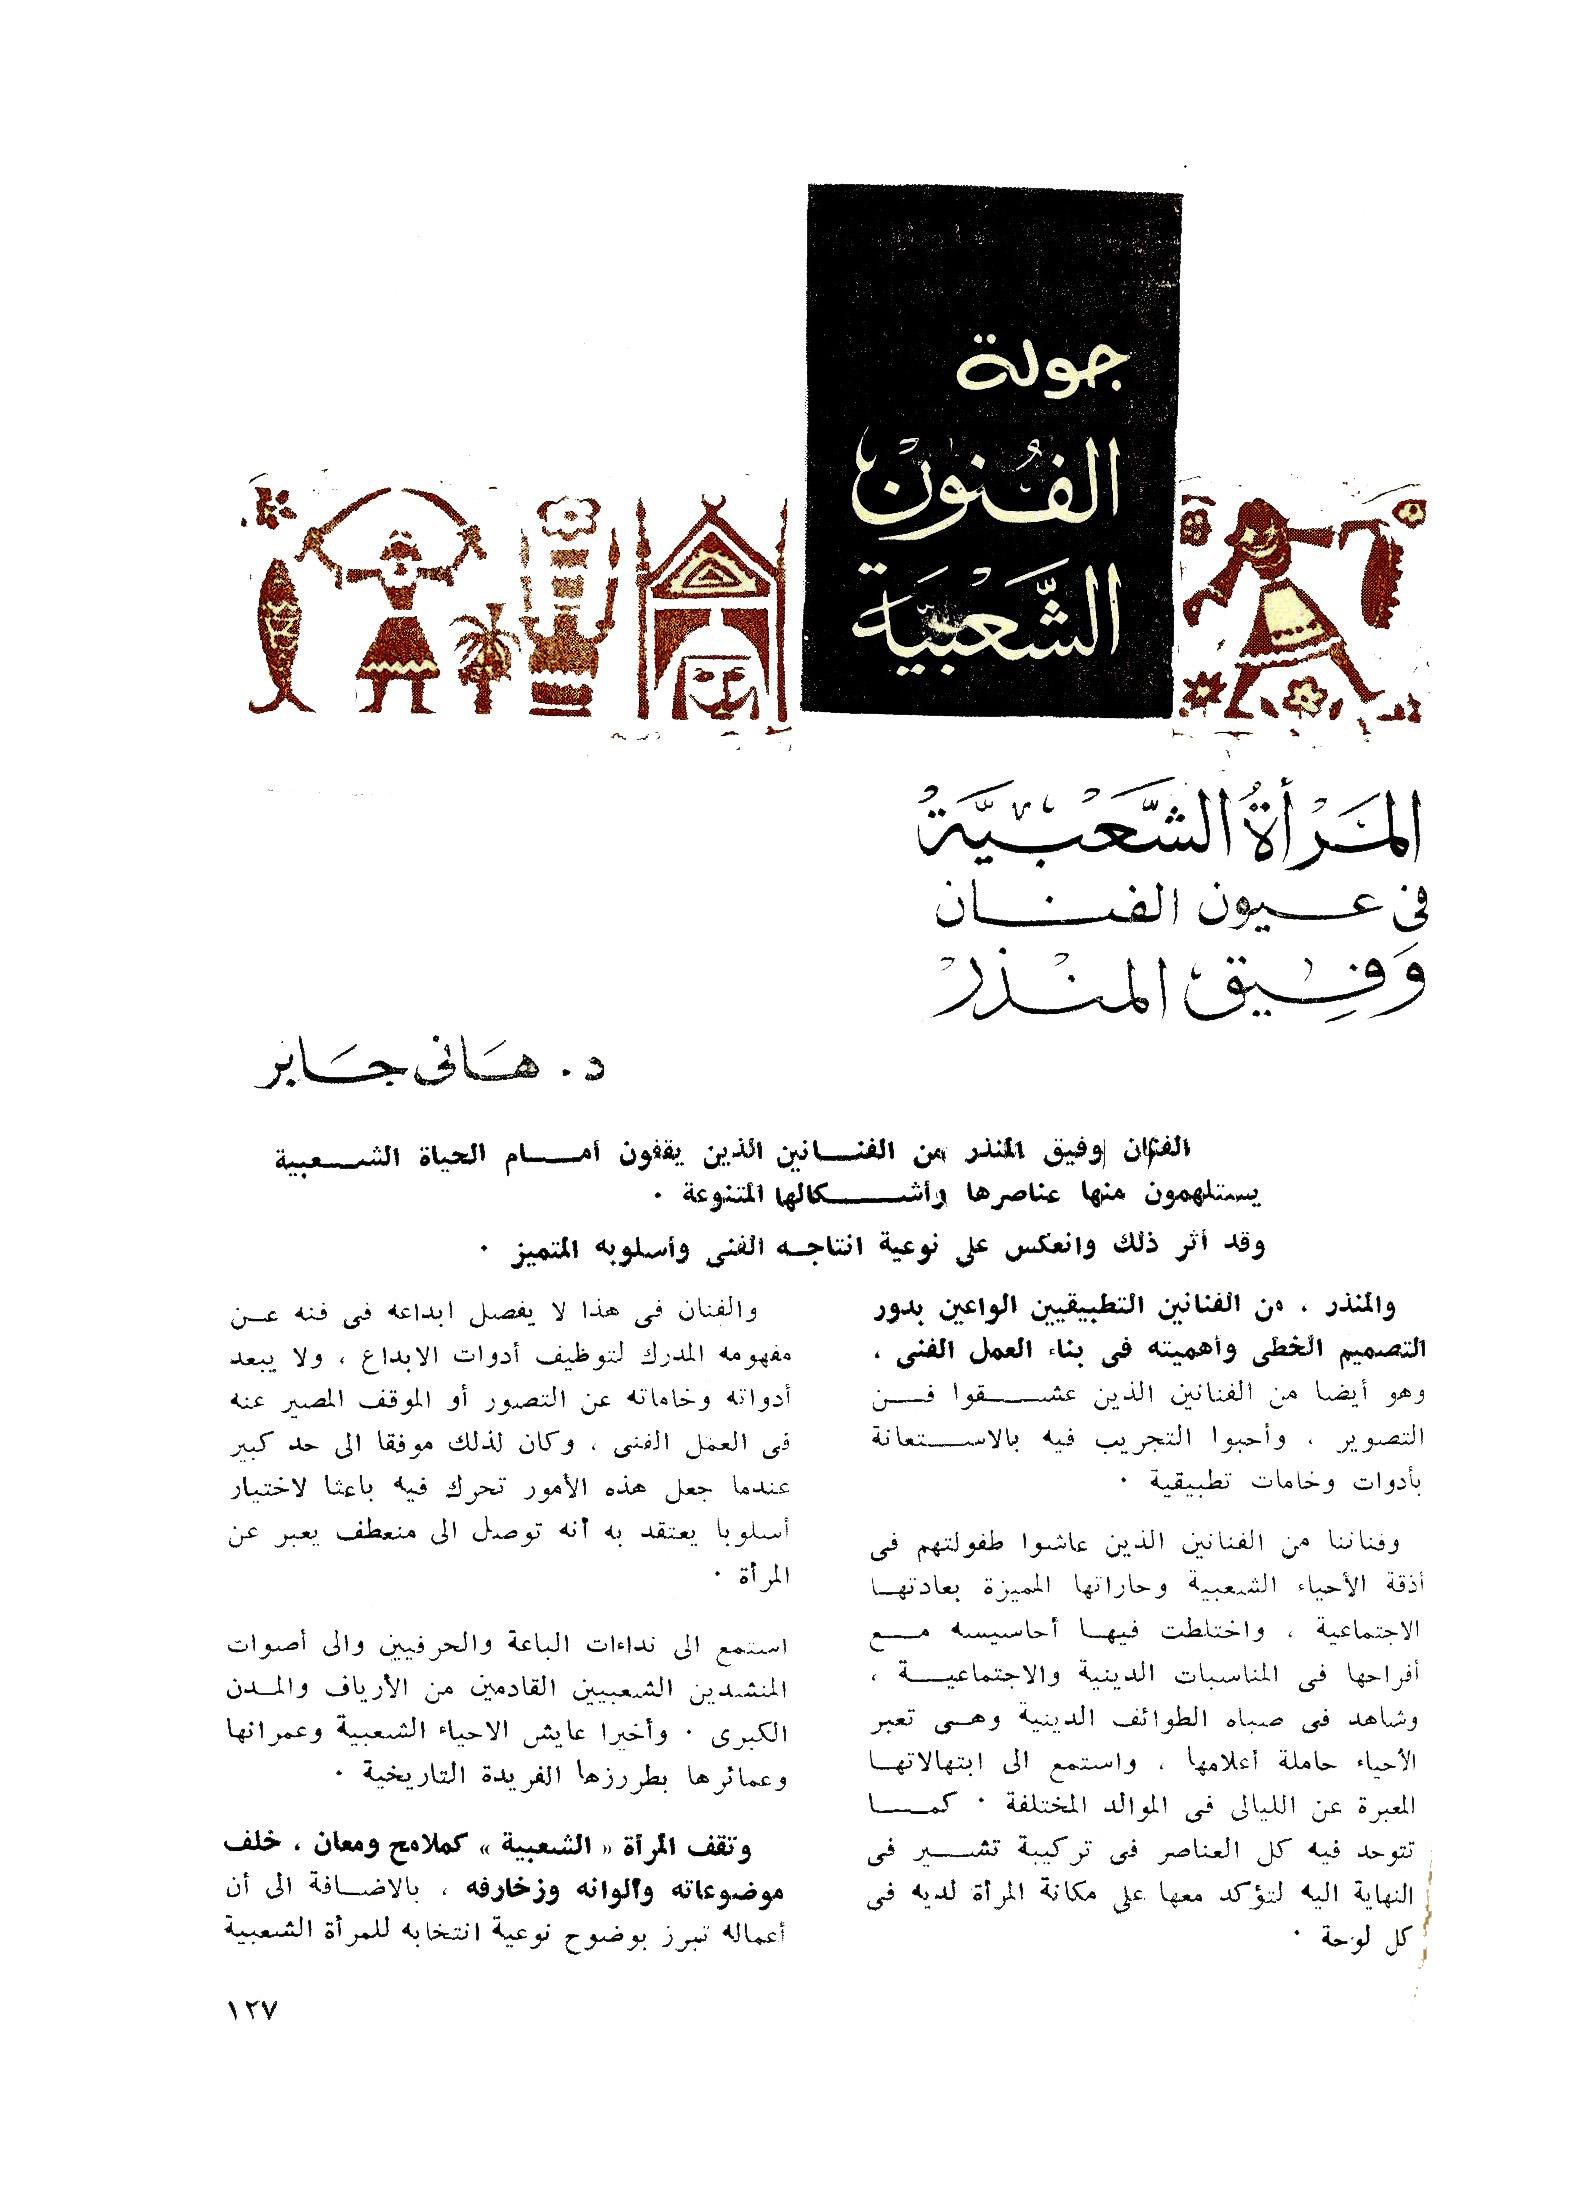 جولة
الفُنون
الشَّعبيَّة
المَرْأةُ الشَّعْبيَّة
فى عيون الفنان
وَفِيق المنذر
د. هَانى جَابر
الفنان وفيق المنذر من الفنانين الذين يقفون أمام الحياة الشعبية
يستلهمون منها عناصرها وأشكالها المتنوعة .
وقد أثر ذلك وانعكس على نوعية انتاجه الفنى وأسلوبه المتميز .
والمنذر ، من الفنانين التطبيقيين الواعين بدور
التصميم الخطى وأهميته فى بناء العمل الفنى ،
وهو أيضا من الفنانين الذين عشقوا فن
التصوير ، وأحبوا التجريب فيه بالاستعانة
بأدوات وخامات تطبيقية .
وفناننا من الفنانين الذين عاشوا طفولتهم فى
أذقة الأحياء الشعبية وحاراتها المميزة بعادتها
الاجتماعية ، واختلطت فيها أحاسيسه مع
أفراحها فى المناسبات الدينية والاجتماعية ،
وشاهد فى صباه الطوائف الدينية وهى تعبر
الأحياء حاملة أعلامها ، واستمع الى ابتهالاتها
المعبرة عن الليالى فى الموالد المختلفة . كما
تتوحد فيه كل العناصر فى تركيبة تشير فى
النهاية اليه لتؤكد معها على مكانة المرأة لديه فى
كل لوحة .
والفنان فى هذا لا يفصل ابداعه فى فنه عن
مفهومه المدرك لتوظيف أدوات الابداع ، ولا يبعد
أدواته وخاماته عن التصور أو الموقف المصير عنه
فى العمل الفنى ، وكان لذلك موفقا الى حد كبير
عندما جعل هذه الأمور تحرك فيه باعثا لاختيار
أسلوبا يعتقد به أنه توصل الى منعطف يعبر عن
المرأة .
استمع الى نداءات الباعة والحرفيين والى أصوات
المنشدين الشعبيين القادمين من الأرياف والمدن
الكبرى . وأخيرا عايش الاحياء الشعبية وعمرانها
وعمائرها بطررزها الفريدة التاريخية .
وتقف المرأة « الشعبية » كملامح ومعان ، خلف
موضوعاته وألوانه وزخارفه ، بالاضافة الى أن
أعماله تبرز بوضوح نوعية انتخابه للمرأة الشعبية
١٢٧